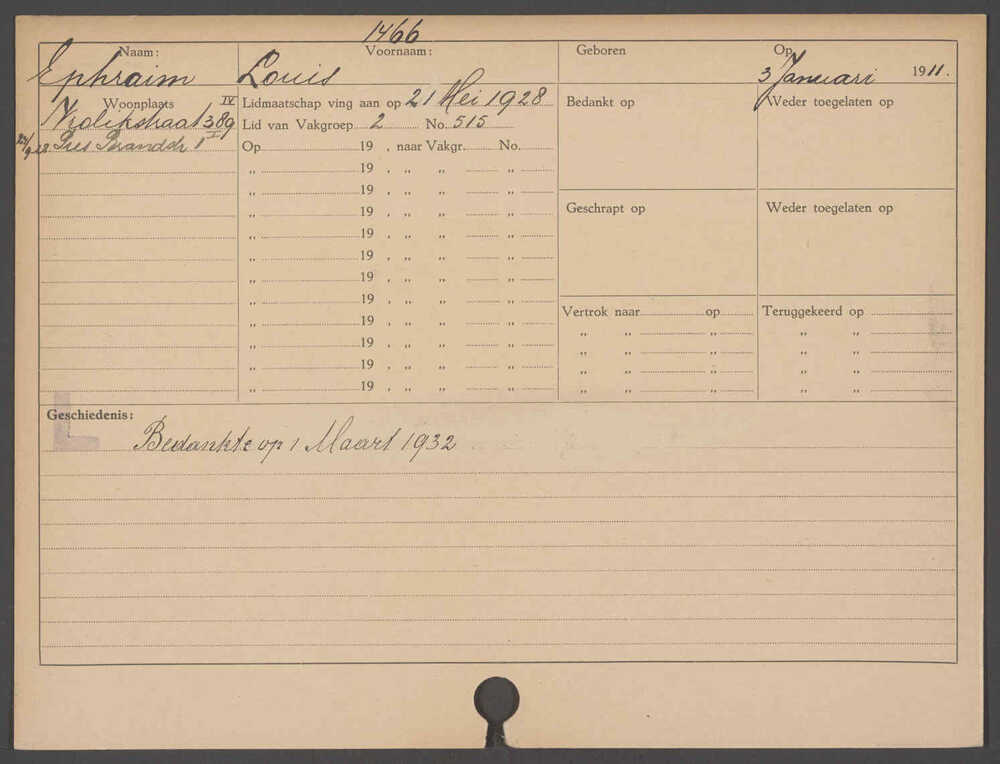 1466
Naam: Voornaam: Geboren Op
Ephraim Louis 3 Januari 1911.
Woonplaats IV Lidmaatschap ving aan op 21 Mei 1928 Bedankt op Weder toegelaten op
Vrolikstraat 389 Lid van Vakgroep 2 No. 515
Pres Brandstr 1 I Op 19 , naar Vakgr. No.
„ 19 , „ „ „
„ 19 , „ „ „
„ 19 , „ „ „ Geschrapt op Weder toegelaten op
„ 19 , „ „ „
„ 19 , „ „ „
„ 19 , „ „ „
„ 19 , „ „ „
„ 19 , „ „ „ Vertrok naar op Teruggekeerd op
„ 19 , „ „ „ „ „ „ „ „
„ 19 , „ „ „ „ „ „ „ „
„ 19 , „ „ „ „ „ „ „ „
„ „ „ „ „
Geschiedenis:
L
Bedankte op 1 Maart 1932